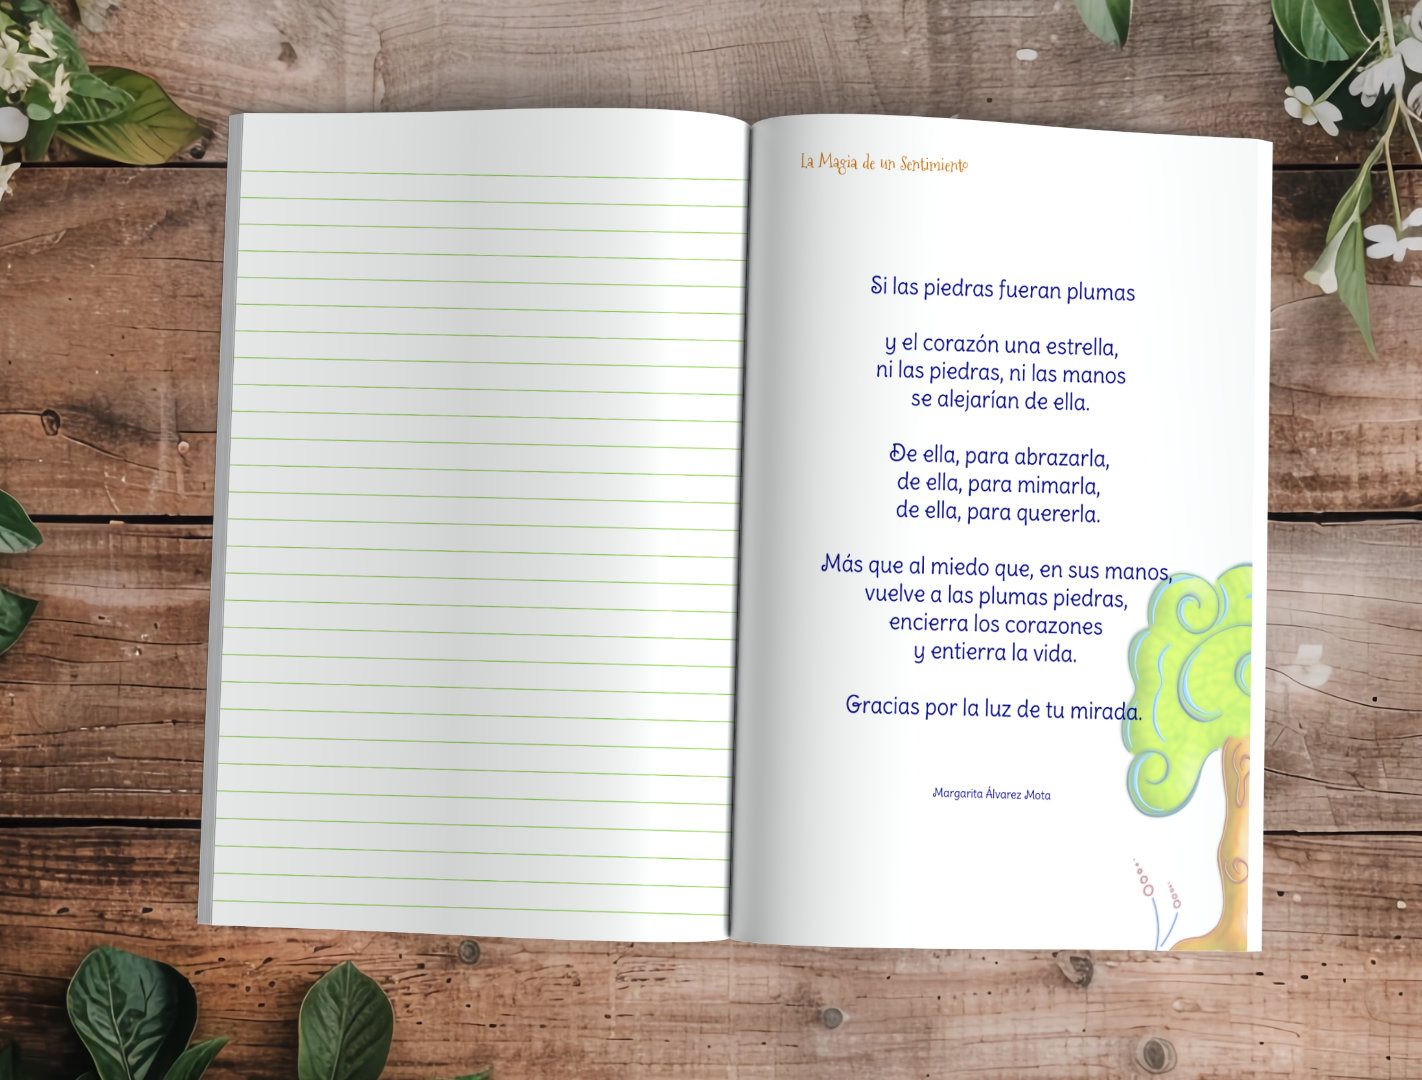 La Magia de un Sentimiento
Si las piedras fueran plumas
y el corazón una estrella,
ni las piedras, ni las manos
se alejarían de ella.
De ella, para abrazarla,
de ella, para mimarla,
de ella, para quererla.
Más que al miedo que, en sus manos,
vuelve a las plumas piedras,
encierra los corazones
y entierra la vida.
Gracias por la luz de tu mirada.
Margarita Álvarez Mota